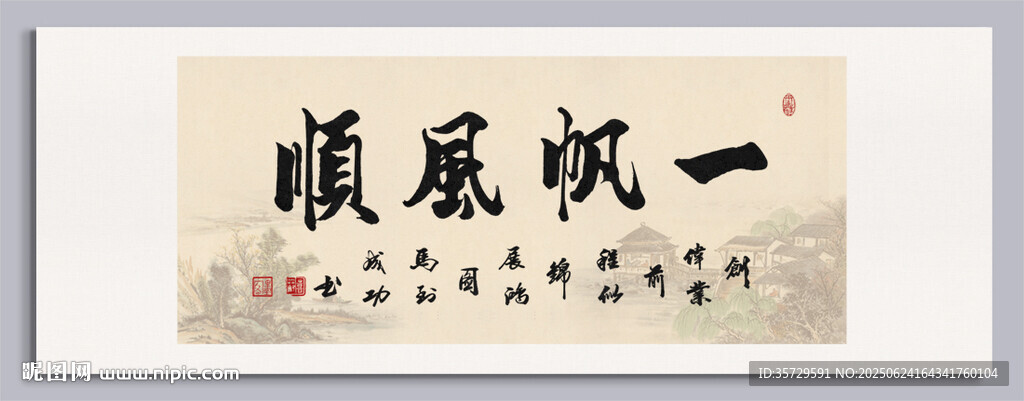 一帆風順
創偉業前程似錦展鴻圖馬到成功书
昵图网 www.nipic.com
ID:35729591 NO:20250624164341760104